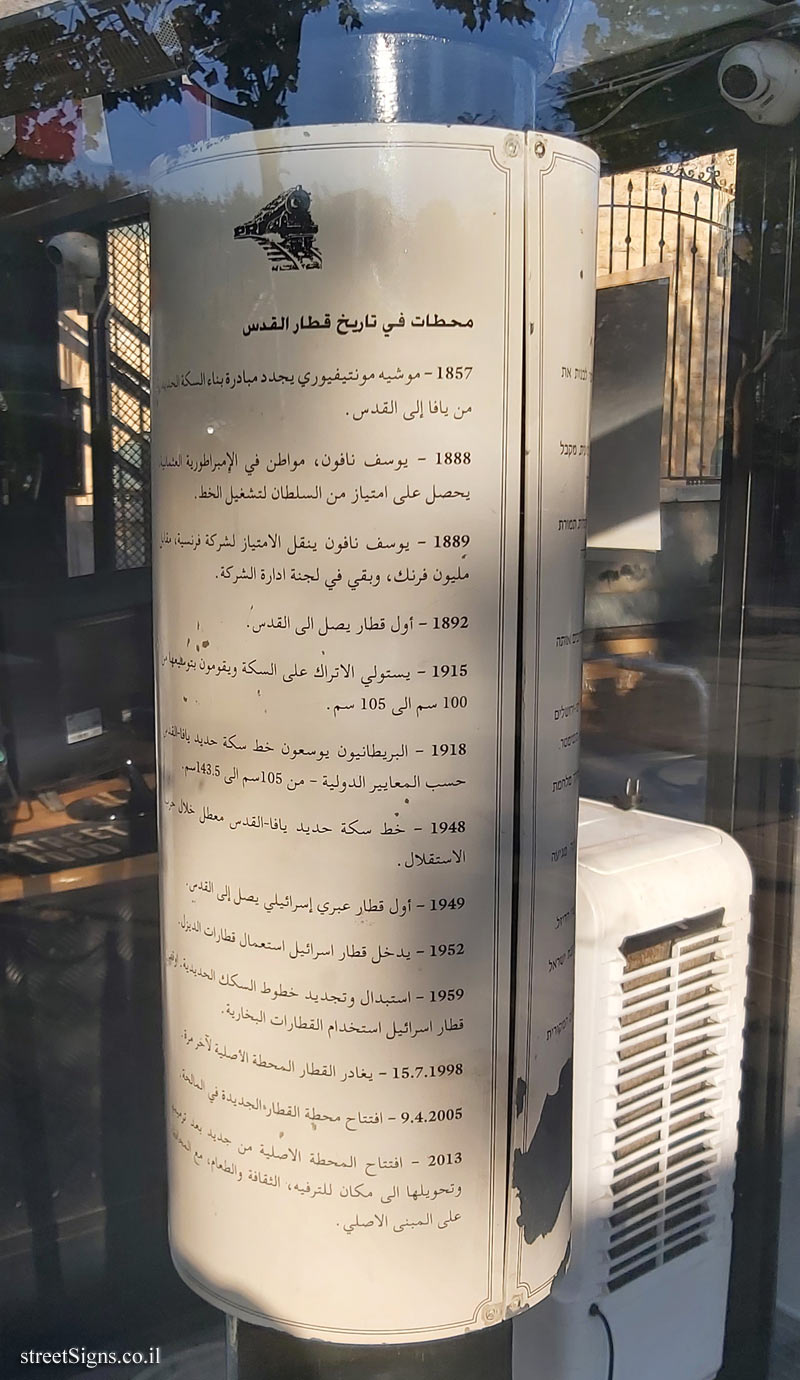 محطات في تاريخ قطار القدس
1857 – موشيه مونتيفيوري يجدد مبادرة بناء السكة
من يافا إلى القدس.
1888 – يوسف نافون، مواطن في الإمبراطورية العثمانية
يحصل على امتياز من السلطان لتشغيل الخط.
1889 – يوسف نافون ينقل الامتياز لشركة فرنسية،
مليون فرنك، وبقي في لجنة ادارة الشركة.
1892 – أول قطار يصل الى القدس.
1915 – يستولي الاتراك على السكة ويقومون بتوسيعها من
100 سم الى 105 سم.
1918 – البريطانيون يوسعون خط سكة حديد يافا-القدس
حسب المعايير الدولية – من 105سم الى 143.5سم.
1948 – خط سكة حديد يافا-القدس معطل خلال حرب
الاستقلال.
1949 – أول قطار عبري إسرائيلي يصل إلى القدس.
1952 – يدخل قطار اسرائيل استعمال قطارات الديزل.
1959 – استبدال وتجديد خطوط السكك الحديدية.
قطار اسرائيل استخدام القطارات البخارية.
15.7.1998 – يغادر القطار المحطة الأصلية لآخر مرة.
9.4.2005 – افتتاح محطة القطار الجديدة في المالحة.
2013 – افتتاح المحطة الاصلية من جديد بعد
وتحويلها الى مكان للترفيه، الثقافة والطعام، مع
على المبنى الاصلي.
לבנות את
תמורת
אותה
ירושלים
מלחמת
מגיעה
ישראל
streetSigns.co.il